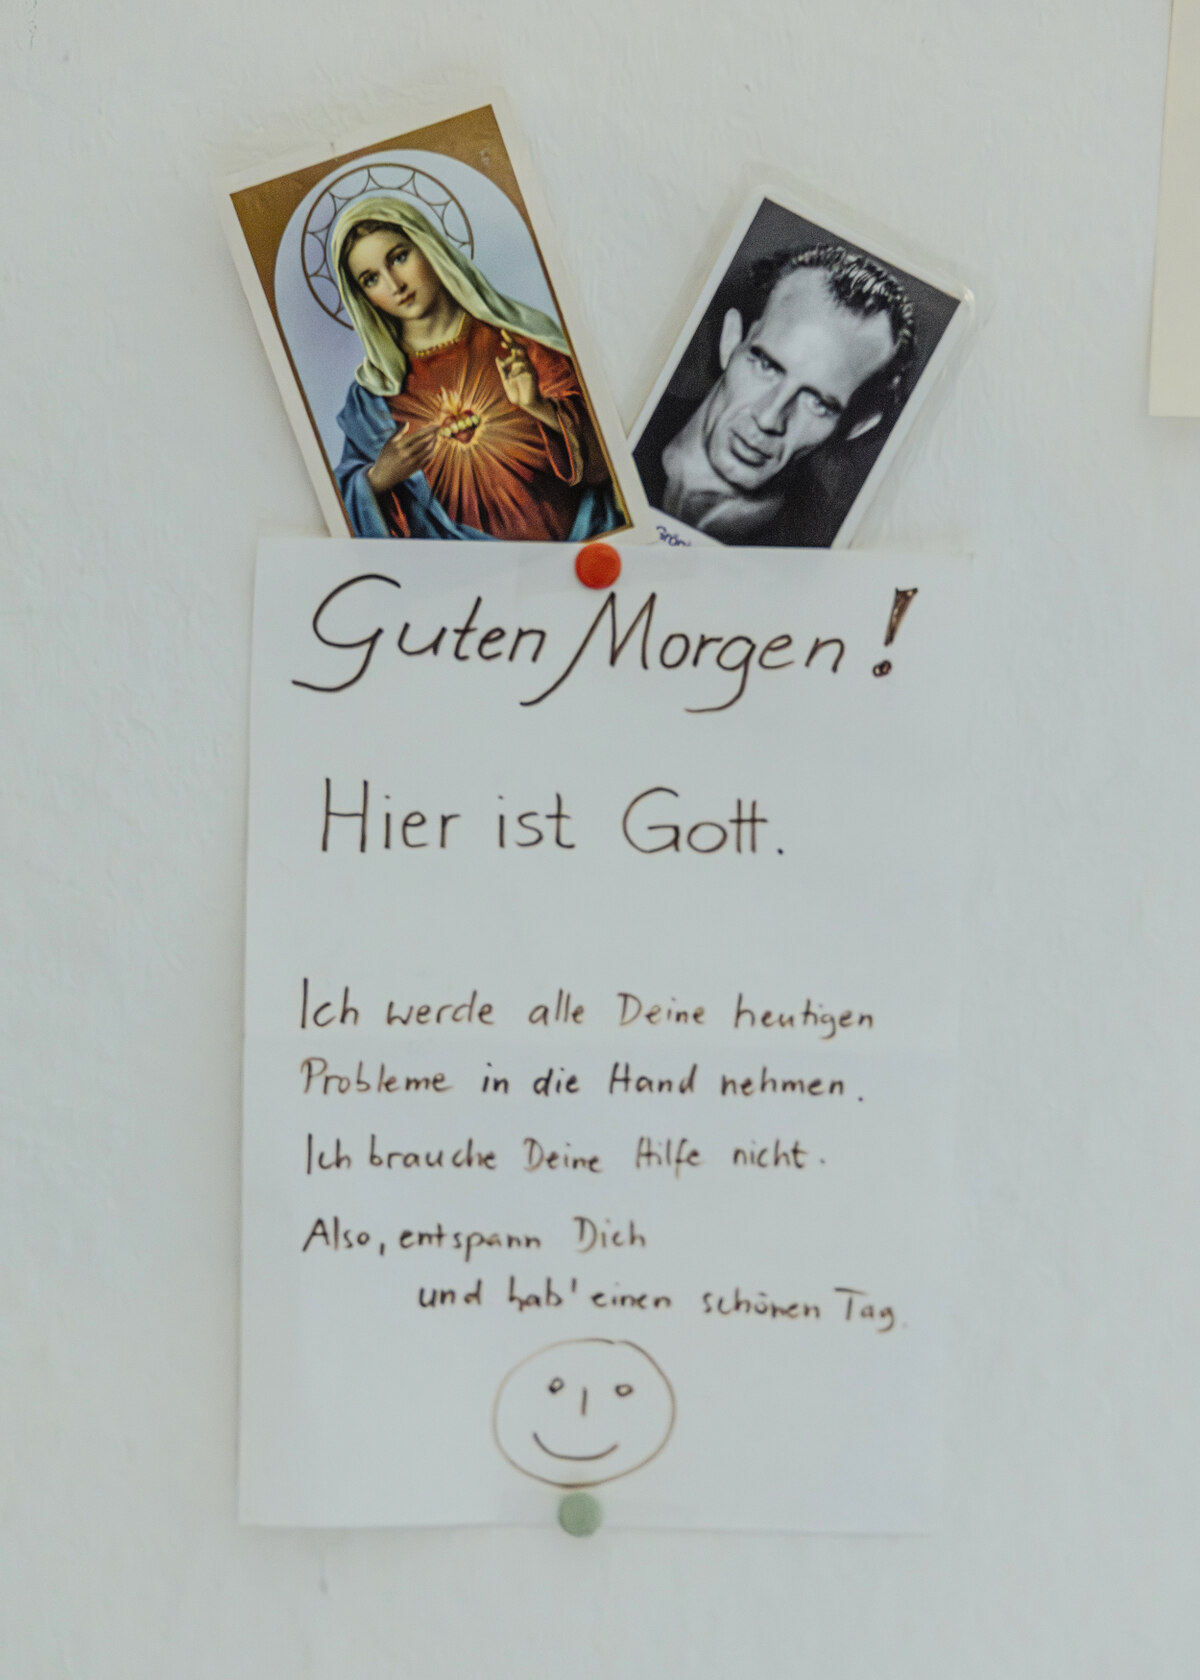 Guten Morgen!
Hier ist Gott.
Ich werde alle Deine heutigen
Probleme in die Hand nehmen.
Ich brauche Deine Hilfe nicht.
Also, entspann Dich
und hab' einen schönen Tag.